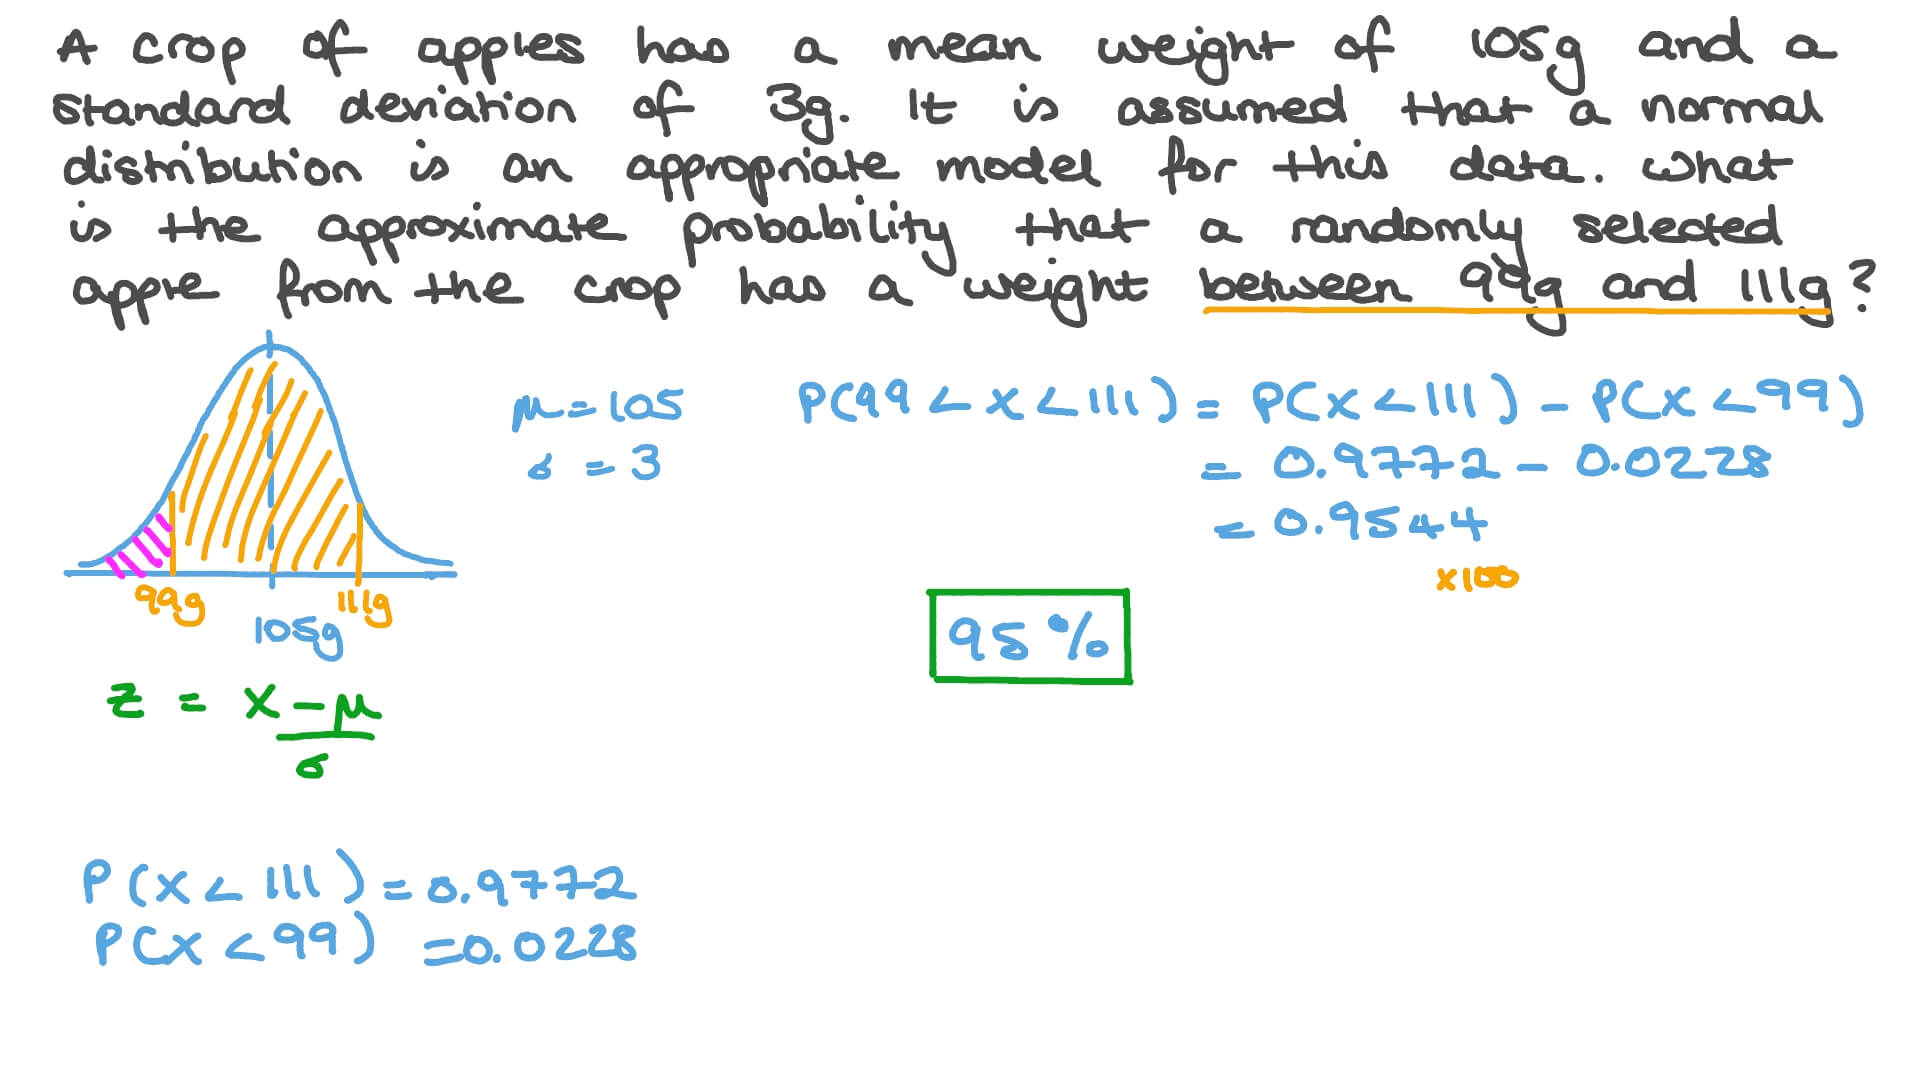 A crop of apples has a mean weight of 105g and a
standard deviation of 3g. It is assumed that a normal
distribution is an appropriate model for this data. What
is the approximate probability that a randomly selected
apple from the crop has a weight between 99g and 111g?
μ=105
σ = 3
P(99 < X < 111) = P(X < 111) - P(X < 99)
= 0.9772 - 0.0228
= 0.9544
x100
95 %
99g
105g
111g
Z = X - μ
σ
P(X < 111) = 0.9772
P(X < 99) = 0.0228